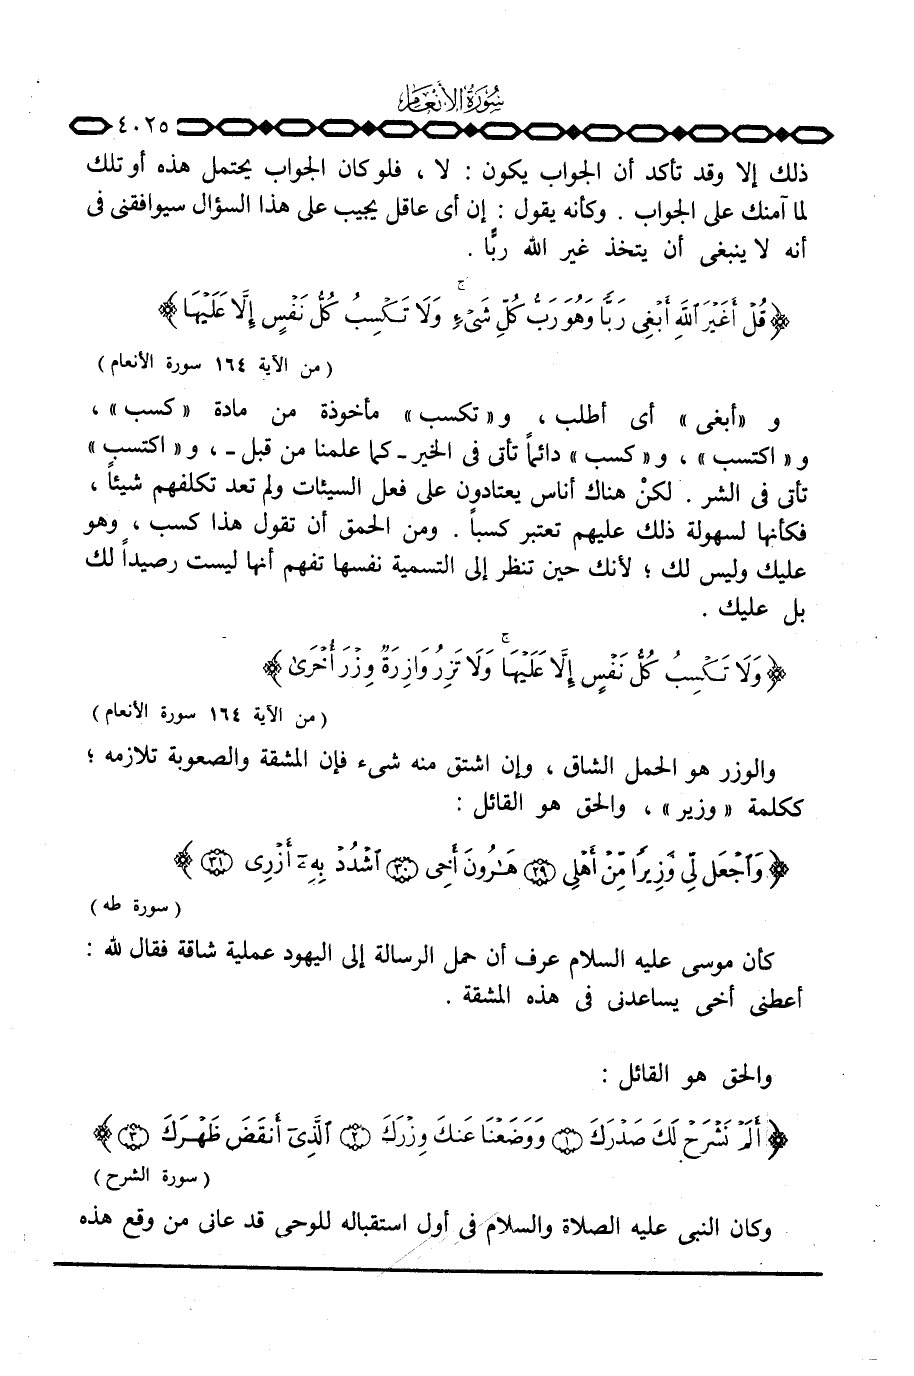 سُورَةُ الأَنْعَامِ
٤٠٢٥
ذلك إلا وقد تأكد أن الجواب يكون : لا ، فلو كان الجواب يحتمل هذه أو تلك
لما آمنك على الجواب . وكأنه يقول : إن أى عاقل يجيب على هذا السؤال سيوافقنى فى
أنه لا ينبغى أن يتخذ غير الله ربًّا .
﴿ قُلْ أَغَيْرَ ٱللَّهِ أَبْغِى رَبًّا وَهُوَ رَبُّ كُلِّ شَىْءٍ ۚ وَلَا تَكْسِبُ كُلُّ نَفْسٍ إِلَّا عَلَيْهَا ﴾
( من الآية ١٦٤ سورة الأنعام )
و «أبغى» أى أطلب ، و«تكسب» مأخوذة من مادة «كسب» ،
و« اكتسب» ، و« كسب» دائماً تأتى فى الخير ـ كما علمنا من قبل ـ ، و« اكتسب»
تأتى فى الشر . لكنْ هناك أناس يعتادون على فعل السيئات ولم تعد تكلفهم شيئاً ،
فكأنها لسهولة ذلك عليهم تعتبر كسباً . ومن الحمق أن تقول هذا كسب ، وهو
عليك وليس لك ؛ لأنك حين تنظر إلى التسمية نفسها تفهم أنها ليست رصيداً لك
بل عليك .
﴿ وَلَا تَكْسِبُ كُلُّ نَفْسٍ إِلَّا عَلَيْهَا ۚ وَلَا تَزِرُ وَازِرَةٌ وِزْرَ أُخْرَىٰ ﴾
( من الآية ١٦٤ سورة الأنعام )
والوزر هو الحمل الشاق ، وإن اشتق منه شىء فإن المشقة والصعوبة تلازمه ؛
ككلمة « وزير» ، والحق هو القائل :
﴿ وَٱجْعَل لِّى وَزِيرًا مِّنْ أَهْلِى ٢٩ هَـٰرُونَ أَخِى ٣٠ ٱشْدُدْ بِهِۦٓ أَزْرِى ٣١ ﴾
( سورة طه )
كأن موسى عليه السلام عرف أن حمل الرسالة إلى اليهود عملية شاقة فقال لله :
أعطنى أخى يساعدنى فى هذه المشقة .
والحق هو القائل :
﴿ أَلَمْ نَشْرَحْ لَكَ صَدْرَكَ ١ وَوَضَعْنَا عَنكَ وِزْرَكَ ٢ ٱلَّذِىٓ أَنقَضَ ظَهْرَكَ ٣ ﴾
( سورة الشرح )
وكان النبى عليه الصلاة والسلام فى أول استقباله للوحى قد عانى من وقع هذه